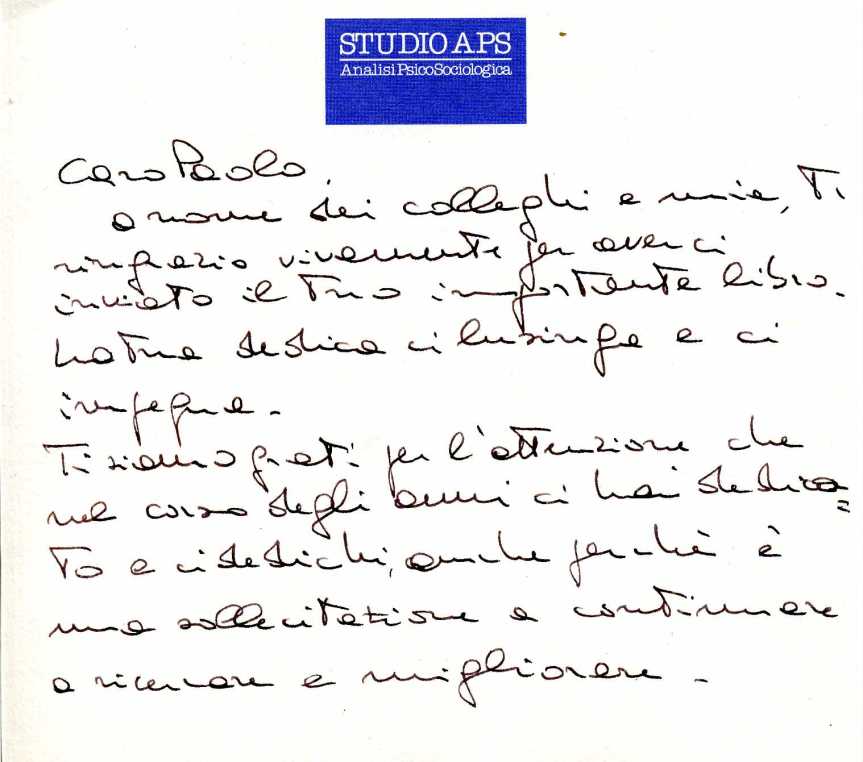 STUDIO APS
Analisi PsicoSociologica
Caro Paolo,
a nome dei colleghi e mio, Ti
ringrazio vivamente per averci
inviato il Tuo importante libro.
La Tua dedica ci lusinga e ci
impegna.
Ti siamo grati per l'attenzione che
nel corso degli anni ci hai dedica=
to e ci dedichi, anche perchè è
una sollecitazione a continuare
a ricercare e migliorare.